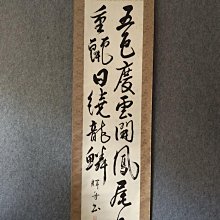 五色慶雲開鳳尾九
重麗日繞龍鱗